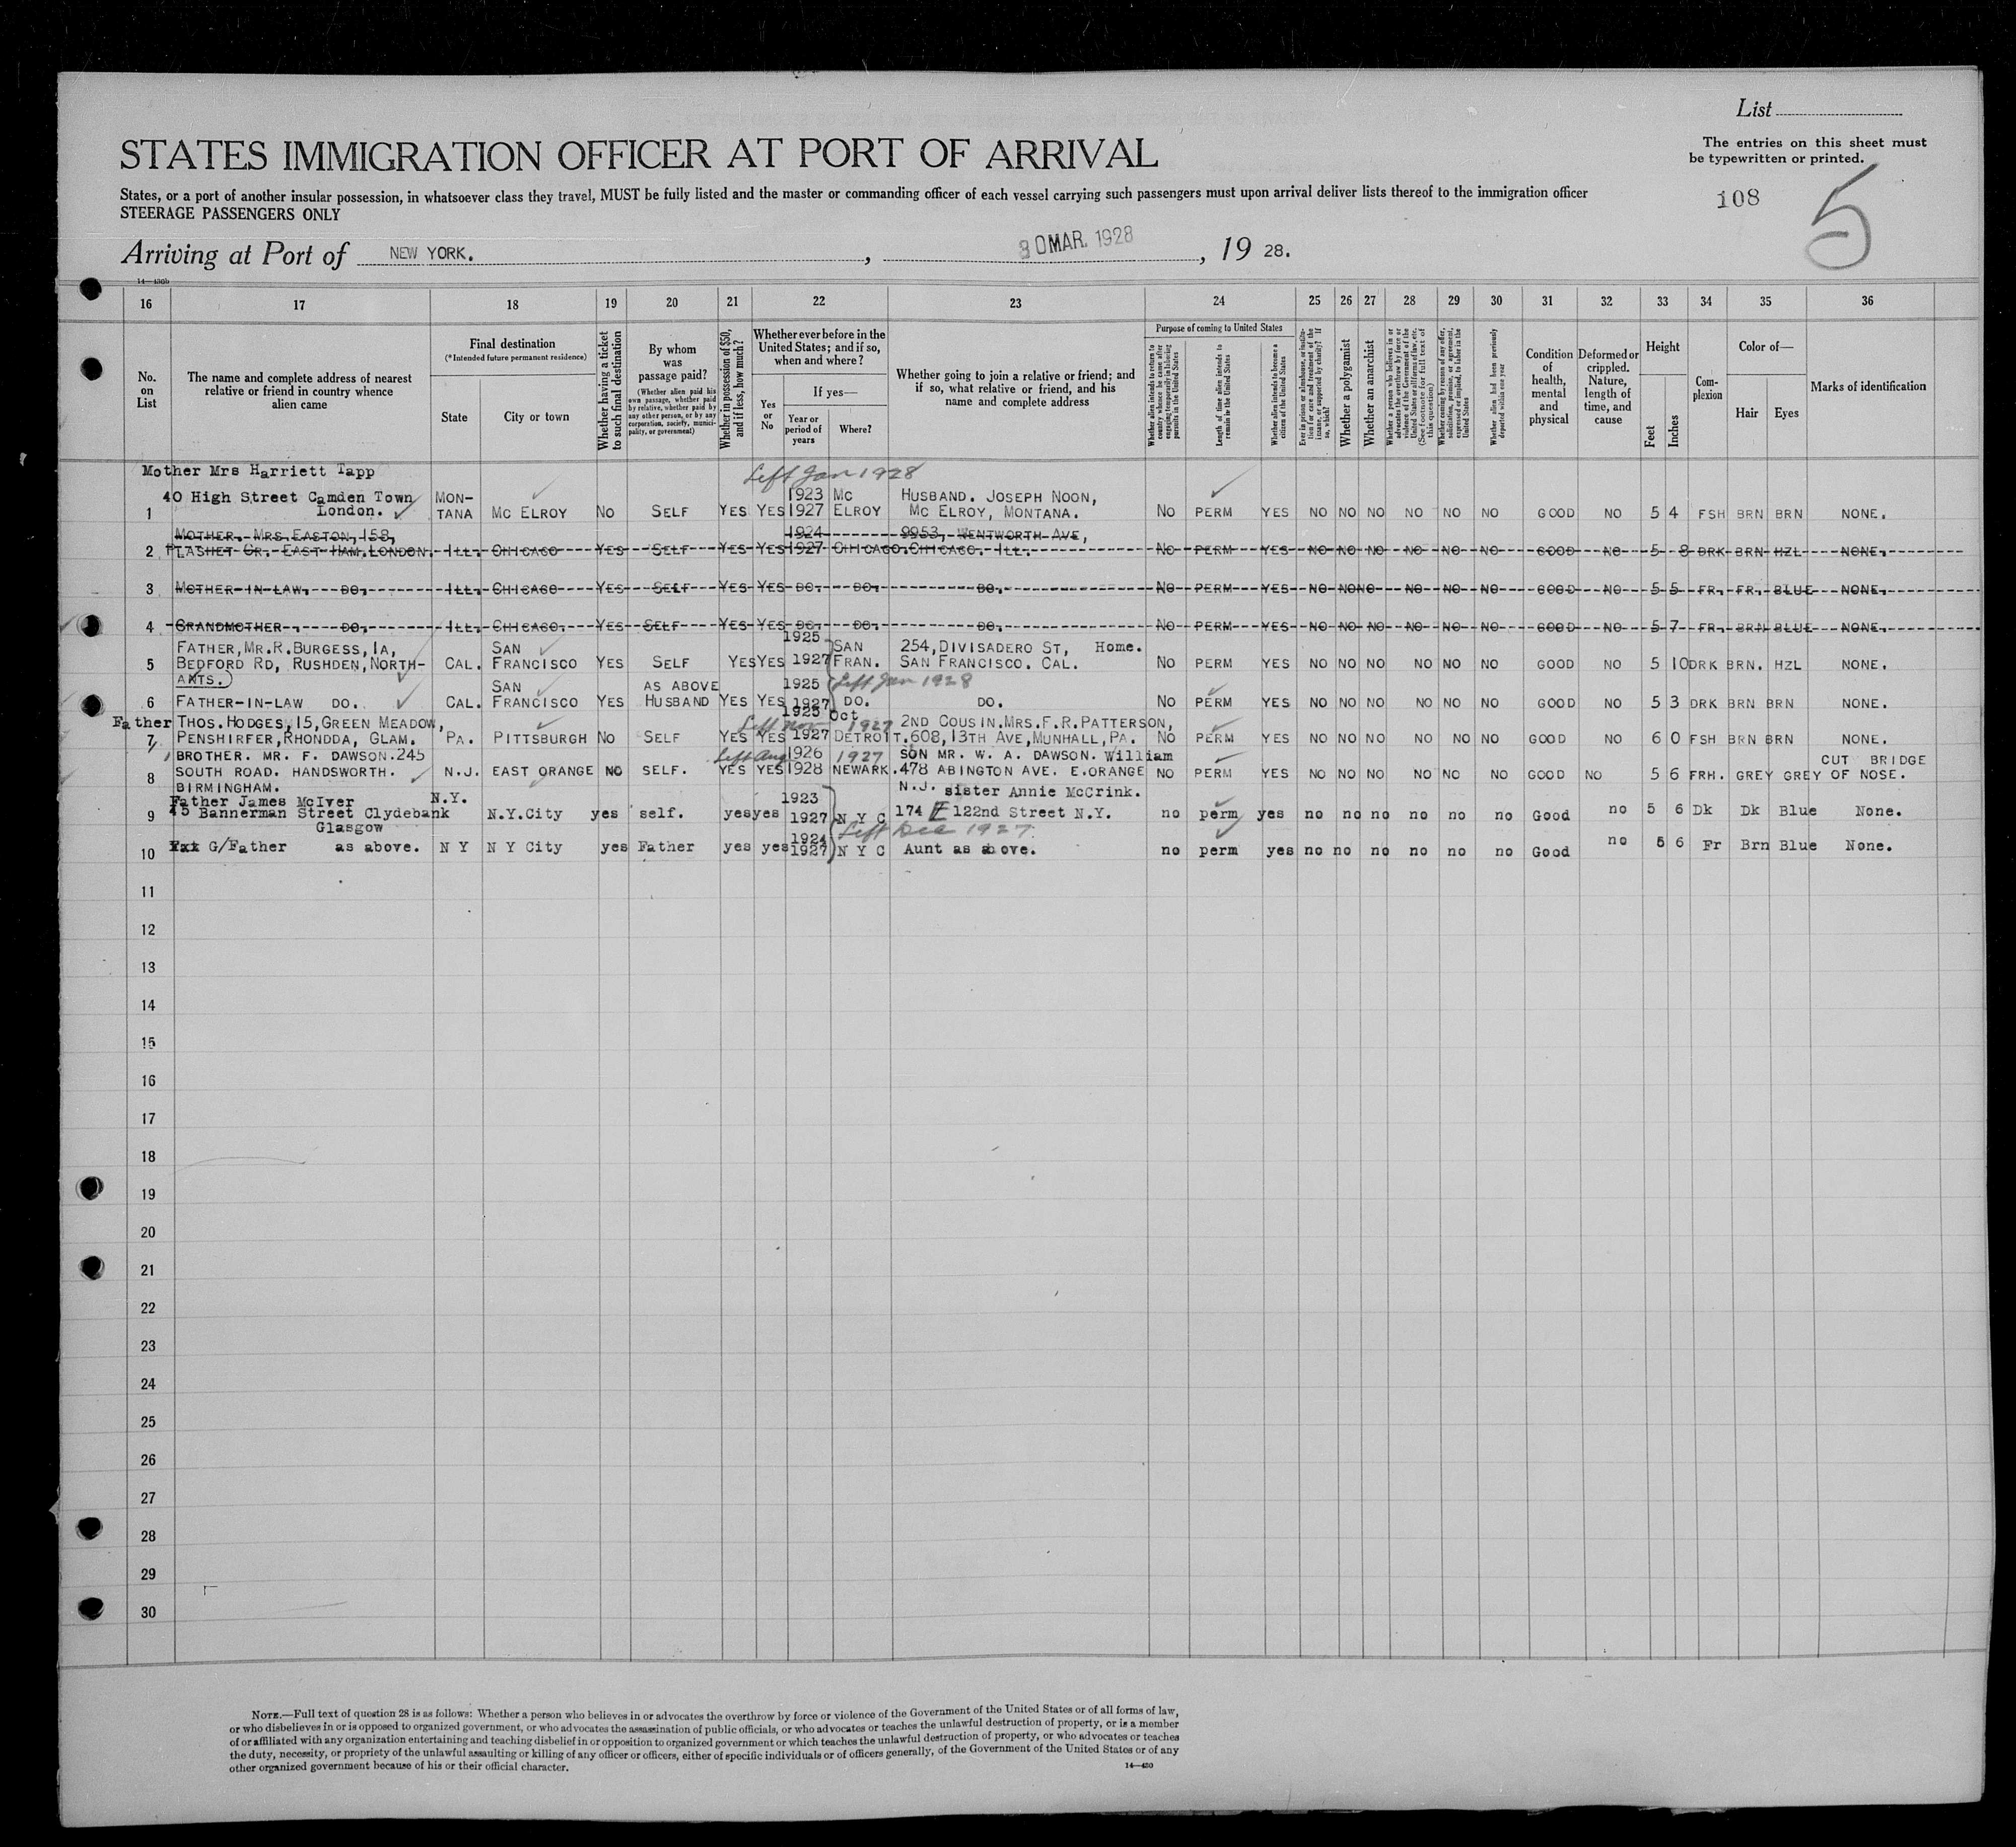 List
STATES IMMIGRATION OFFICER AT PORT OF ARRIVAL
The entries on this sheet must
be typewritten or printed.
States, or a port of another insular possession, in whatsoever class they travel, MUST be fully listed and the master or commanding officer of each vessel carrying such passengers must upon arrival deliver lists thereof to the immigration officer
STEERAGE PASSENGERS ONLY
108 5
Arriving at Port of NEW YORK. , 30 MAR. 1928 , 19 28.
16 17 18 19 20 21 22 23 24 25 26 27 28 29 30 31 32 33 34 35 36
No. on List
The name and complete address of nearest relative or friend in country whence alien came
Final destination
(*Intended future permanent residence)
State
City or town
Whether having a ticket to such final destination
By whom was passage paid?
(Whether alien paid his own passage, whether paid by relative, whether paid by any other person, or by any corporation, society, municipality, or government)
Whether in possession of $50, and if less, how much?
Whether ever before in the United States; and if so, when and where?
Yes or No
If yes—
Year or period of years
Where?
Whether going to join a relative or friend; and if so, what relative or friend, and his name and complete address
Purpose of coming to United States
Whether alien intends to return to country whence he came after engaging temporarily in laboring pursuits in the United States
Length of time alien intends to remain in the United States
Whether alien intends to become a citizen of the United States
Ever in prison or almshouse, or institution for care and treatment of the insane, or supported by charity? If so, which?
Whether a polygamist
Whether an anarchist
Whether a person who believes in or advocates the overthrow by force or violence of the Government of the United States or all forms of law, etc. (See footnote for full text of this question)
Whether coming by reason of any offer, solicitation, promise, or agreement, expressed or implied, to labor in the United States
Whether alien had been previously deported within one year
Condition of health, mental and physical
Deformed or crippled. Nature, length of time, and cause
Height
Feet
Inches
Complexion
Color of—
Hair
Eyes
Marks of identification
Mother Mrs Harriett Tapp Left Jan 1928
40 High Street Camden Town MON- 1923 Mc HUSBAND. JOSEPH NOON,
1 London. TANA MC ELROY NO SELF YES YES 1927 ELROY MC ELROY, MONTANA. NO PERM YES NO NO NO NO NO NO GOOD NO 5 4 FSH BRN BRN NONE.
MOTHER. MRS. EASTON, 158, 1924 9953, WENTWORTH AVE,
2 PLASHET GR. EAST HAM, LONDON. ILL. CHICAGO YES SELF YES YES 1927 CHICAGO. CHICAGO. ILL. NO PERM YES NO NO NO NO NO NO GOOD NO 5 8 DRK BRN HZL NONE.
3 MOTHER-IN-LAW, DO. ILL. CHICAGO YES SELF YES YES DO. DO. DO. NO PERM YES NO NO NO NO NO NO GOOD NO 5 5 FR. FR. BLUE NONE.
4 GRANDMOTHER. DO. ILL. CHICAGO. YES SELF YES YES DO. DO. DO. NO PERM YES NO NO NO NO NO NO GOOD NO 5 7 FR. BRN BLUE NONE.
FATHER, MR. R. BURGESS, 1A, SAN 1925 SAN 254, DIVISADERO ST, Home.
5 BEDFORD RD, RUSHDEN, NORTH- CAL. FRANCISCO YES SELF YES YES 1927 FRAN. SAN FRANCISCO. CAL. NO PERM YES NO NO NO NO NO NO GOOD NO 5 10 DRK BRN. HZL NONE.
ANTS. SAN AS ABOVE 1925 Left Jan 1928
6 FATHER-IN-LAW DO. CAL. FRANCISCO YES HUSBAND YES YES 1927 DO. DO. NO PERM YES NO NO NO NO NO NO GOOD NO 5 3 DRK BRN BRN NONE.
Father THOS. HODGES, 15, GREEN MEADOW, Left Nov 1925 Oct 1927 2ND COUSIN. MRS. F. R. PATTERSON,
7 PENSHIRFER, RHONDDA, GLAM. PA. PITTSBURGH NO SELF YES YES 1927 DETROIT. 608, 13TH AVE, MUNHALL, PA. NO PERM YES NO NO NO NO NO NO GOOD NO 6 0 FSH BRN BRN NONE.
BROTHER. MR. F. DAWSON. 245 Left Aug 1926 1927 SON MR. W. A. DAWSON. William CUT BRIDGE
8 SOUTH ROAD. HANDSWORTH. N.J. EAST ORANGE NO SELF. YES YES 1928 NEWARK. 478 ABINGTON AVE. E. ORANGE NO PERM YES NO NO NO NO NO NO GOOD NO 5 6 FRH. GREY GREY OF NOSE.
BIRMINGHAM. N.J.
Father James McIver N.Y. 1923 sister Annie McCrink.
9 45 Bannerman Street Clydebank N.Y.City yes self. yes yes 1927 N Y C 174 E 122nd Street N.Y. no perm yes no no no no no no Good no 5 6 Dk Dk Blue None.
Glasgow 1924 Left Dec 1927
10 G/Father as above. N Y N Y City yes Father yes yes 1927 N Y C Aunt as above. no perm yes no no no no no no Good no 5 6 Fr Brn Blue None.
11
12
13
14
15
16
17
18
19
20
21
22
23
24
25
26
27
28
29
30
NOTE.—Full text of question 28 is as follows: Whether a person who believes in or advocates the overthrow by force or violence of the Government of the United States or of all forms of law,
or who disbelieves in or is opposed to organized government, or who advocates the assassination of public officials, or who advocates or teaches the unlawful destruction of property, or is a member
of or affiliated with any organization entertaining and teaching disbelief in or opposition to organized government or which teaches the unlawful destruction of property, or who advocates or teaches
the duty, necessity, or propriety of the unlawful assaulting or killing of any officer or officers, either of specific individuals or of officers generally, of the Government of the United States or of any
other organized government because of his or their official character.
14—430